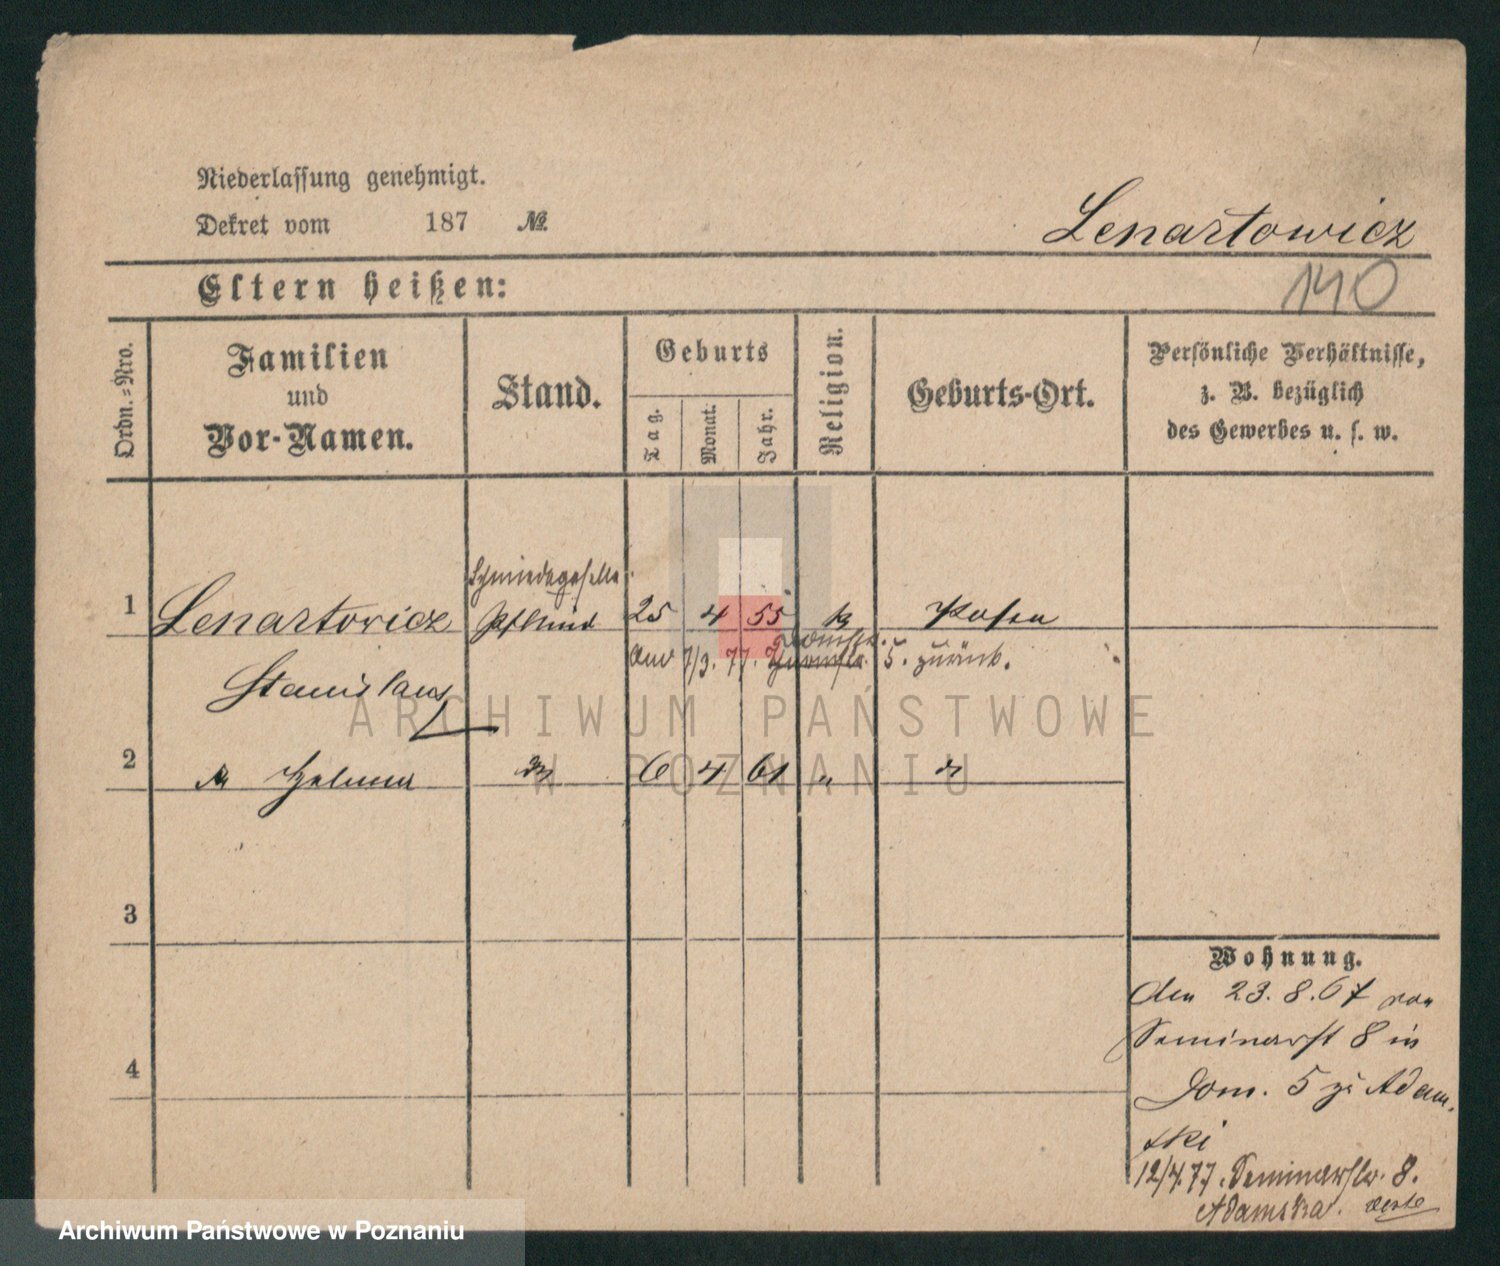 Niederlassung genehmigt.
Dekret vom 187 №.
Lenartowicz
140
Eltern heißen:
Ordn.=Nro.
Familien
und
Vor-Namen.
Stand.
Geburts
Tag.
Monat.
Jahr.
Religion.
Geburts-Ort.
Persönliche Verhältnisse,
z. B. bezüglich
des Gewerbes u. s. w.
Schmiedegeselle
1 Lenartowicz Pflkind 25 4 55 k Posen
7/3. 77. 5. zurück.
Stanislaus
ARCHIWUM PAŃSTWOWE
W POZNANIU
2 6 4 61 "
3
4
Wohnung.
den 23. 8. 67 von
Seminarst 8 in
Dom. 5 zu Adam.
ski
12/4.77. Seminarstr. 8.
Adamska.
Archiwum Państwowe w Poznaniu